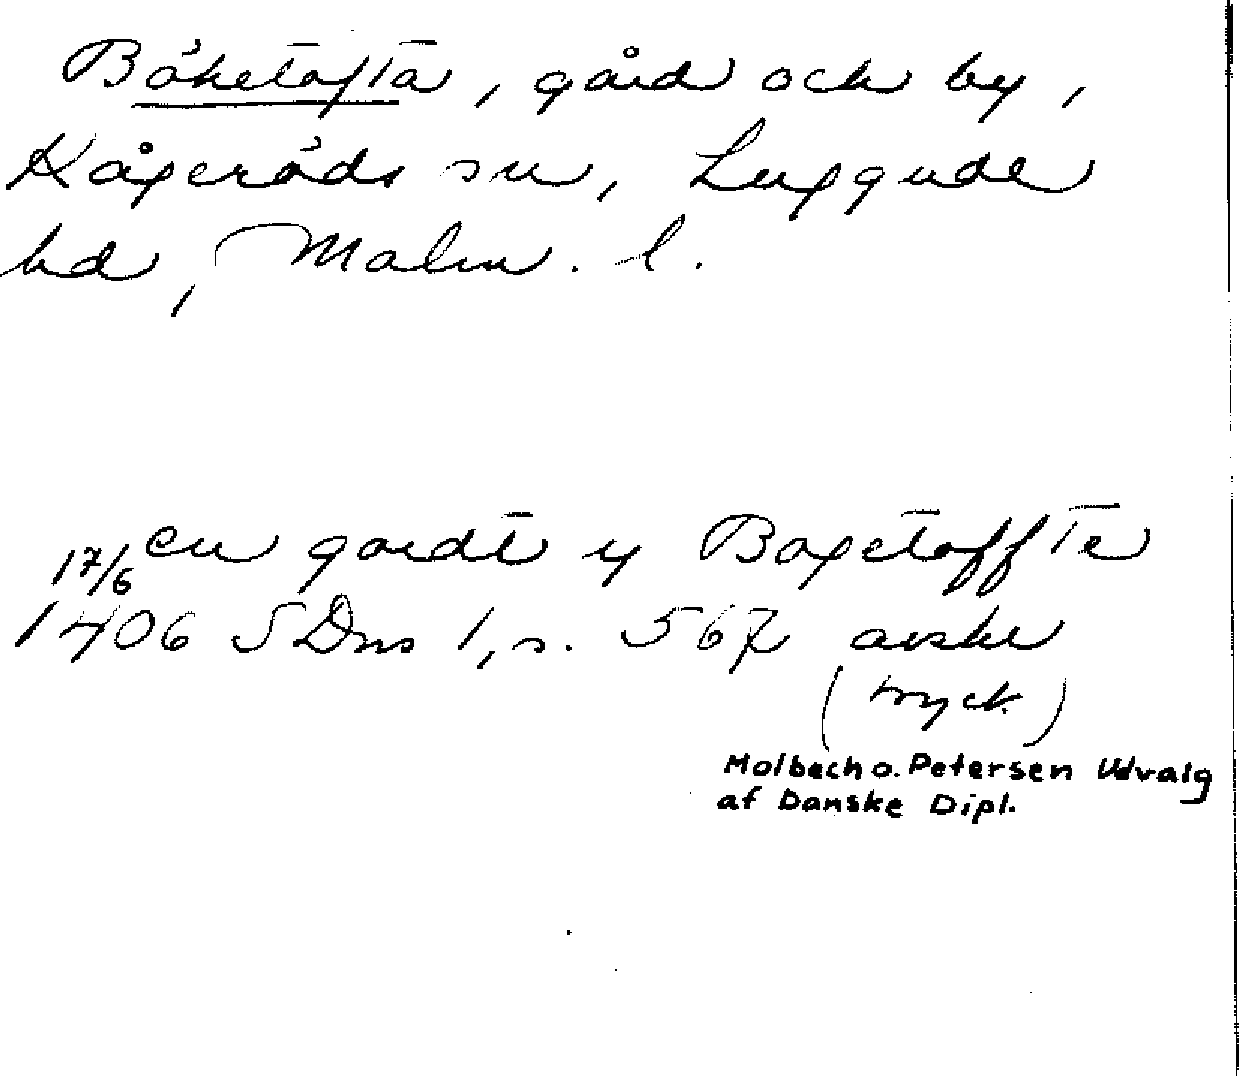 Böketofta, gård och by,
Kågeröds sn, Luggude
hd, Malm. l.
en gardt y Bogetoffte
17/6 1406 SDns 1, s. 567 avskr
(tryck)
Molbech o. Petersen Udvalg
af Danske Dipl.